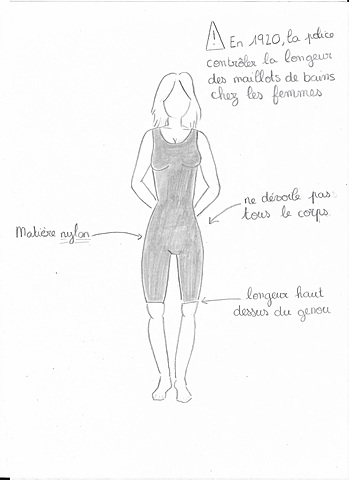 ⚠ En 1920, la police
contrôler la longeur
des maillots de bains
chez les femmes
ne dévoile pas
tous le corps.
Matière nylon
longeur haut
dessus du genou